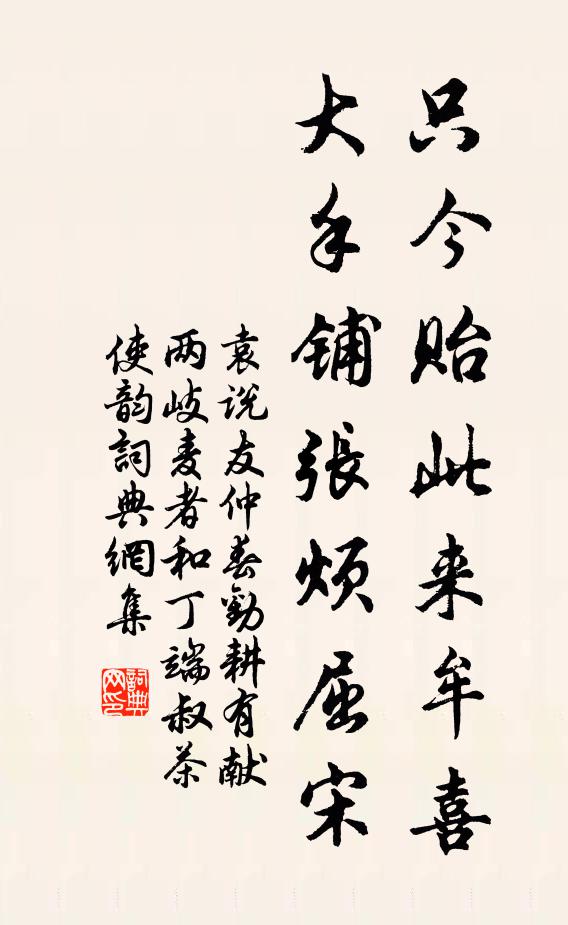 只今贻此来牟喜
大手铺張烦屈宋
袁说友仲春勸耕有献
两岐麦者和丁端叔茶
使韵詞典網集
詞典
网印